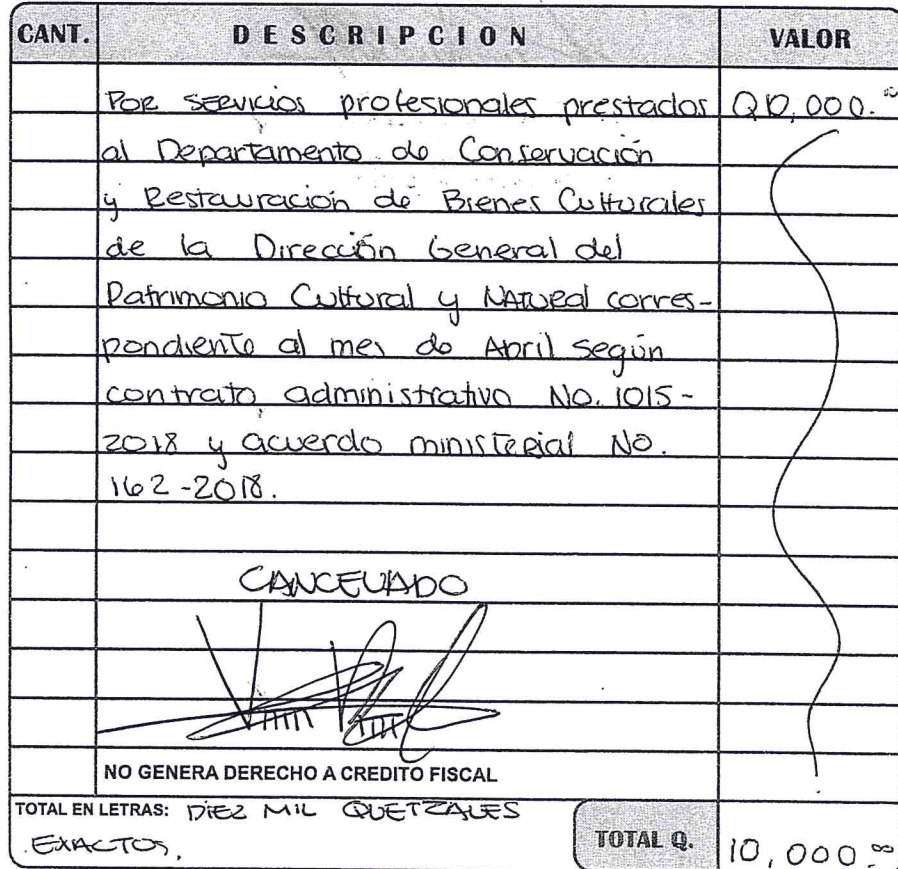 CANT. DESCRIPCION VALOR
Por servicios profesionales prestados Q10,000.00
al Departamento de Conservación
y Restauración de Bienes Culturales
de la Dirección General del
Patrimonio Cultural y Natural corres-
pondiente al mes de Abril según
contrato administrativo No. 1015-
2018 y acuerdo ministerial No.
162-2018.
CANCELADO
NO GENERA DERECHO A CREDITO FISCAL
TOTAL EN LETRAS: DIEZ MIL QUETZALES
EXACTOS.
TOTAL Q. 10,000.00